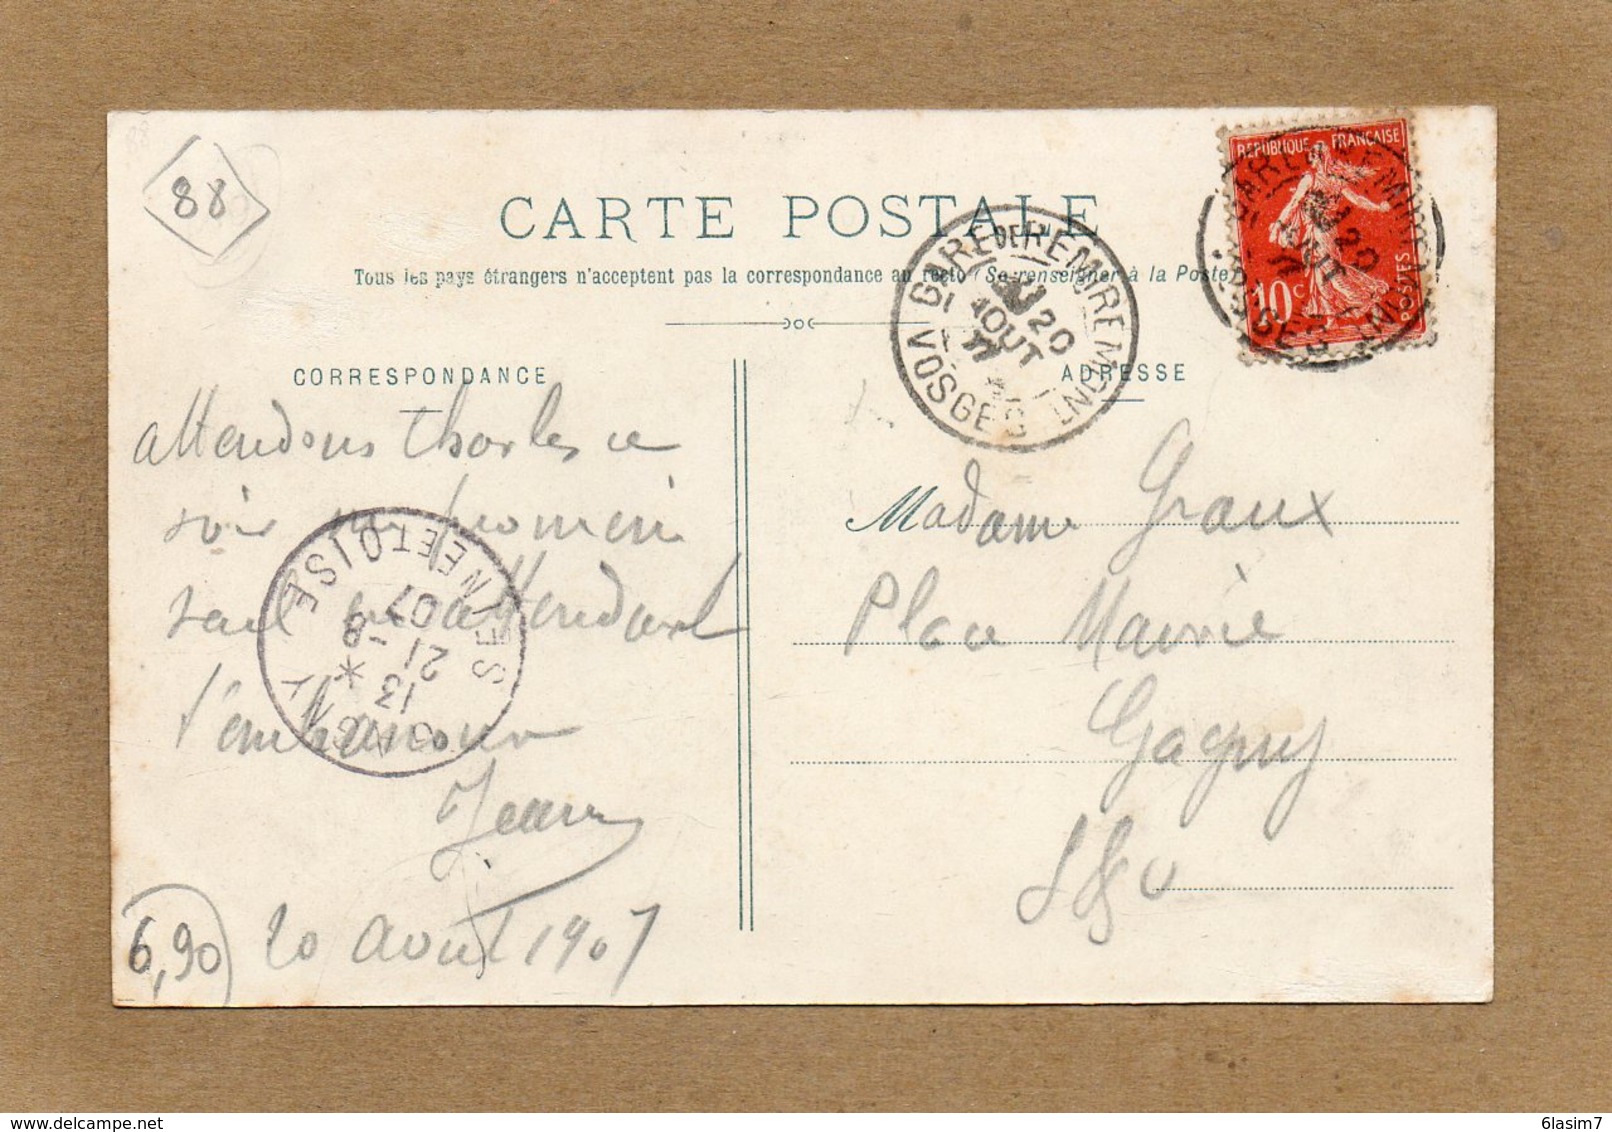 88
CARTE POSTALE
Tous les pays étrangers n'acceptent pas la correspondance au recto (Se renseigner à la Poste)
REPUBLIQUE FRANÇAISE
10c
POSTES
GARE DE REMIREMONT
20
AOUT
VOSGES
CORRESPONDANCE
ADRESSE
attendons Charles ce
soir
attendant
t'embrasson
20 Aout 1907
6,90
SEINE ET OISE
13 *
21 -8
07
GAGNY
Madame Graux
Place Mairie
Gagny
S & O
6lasim7